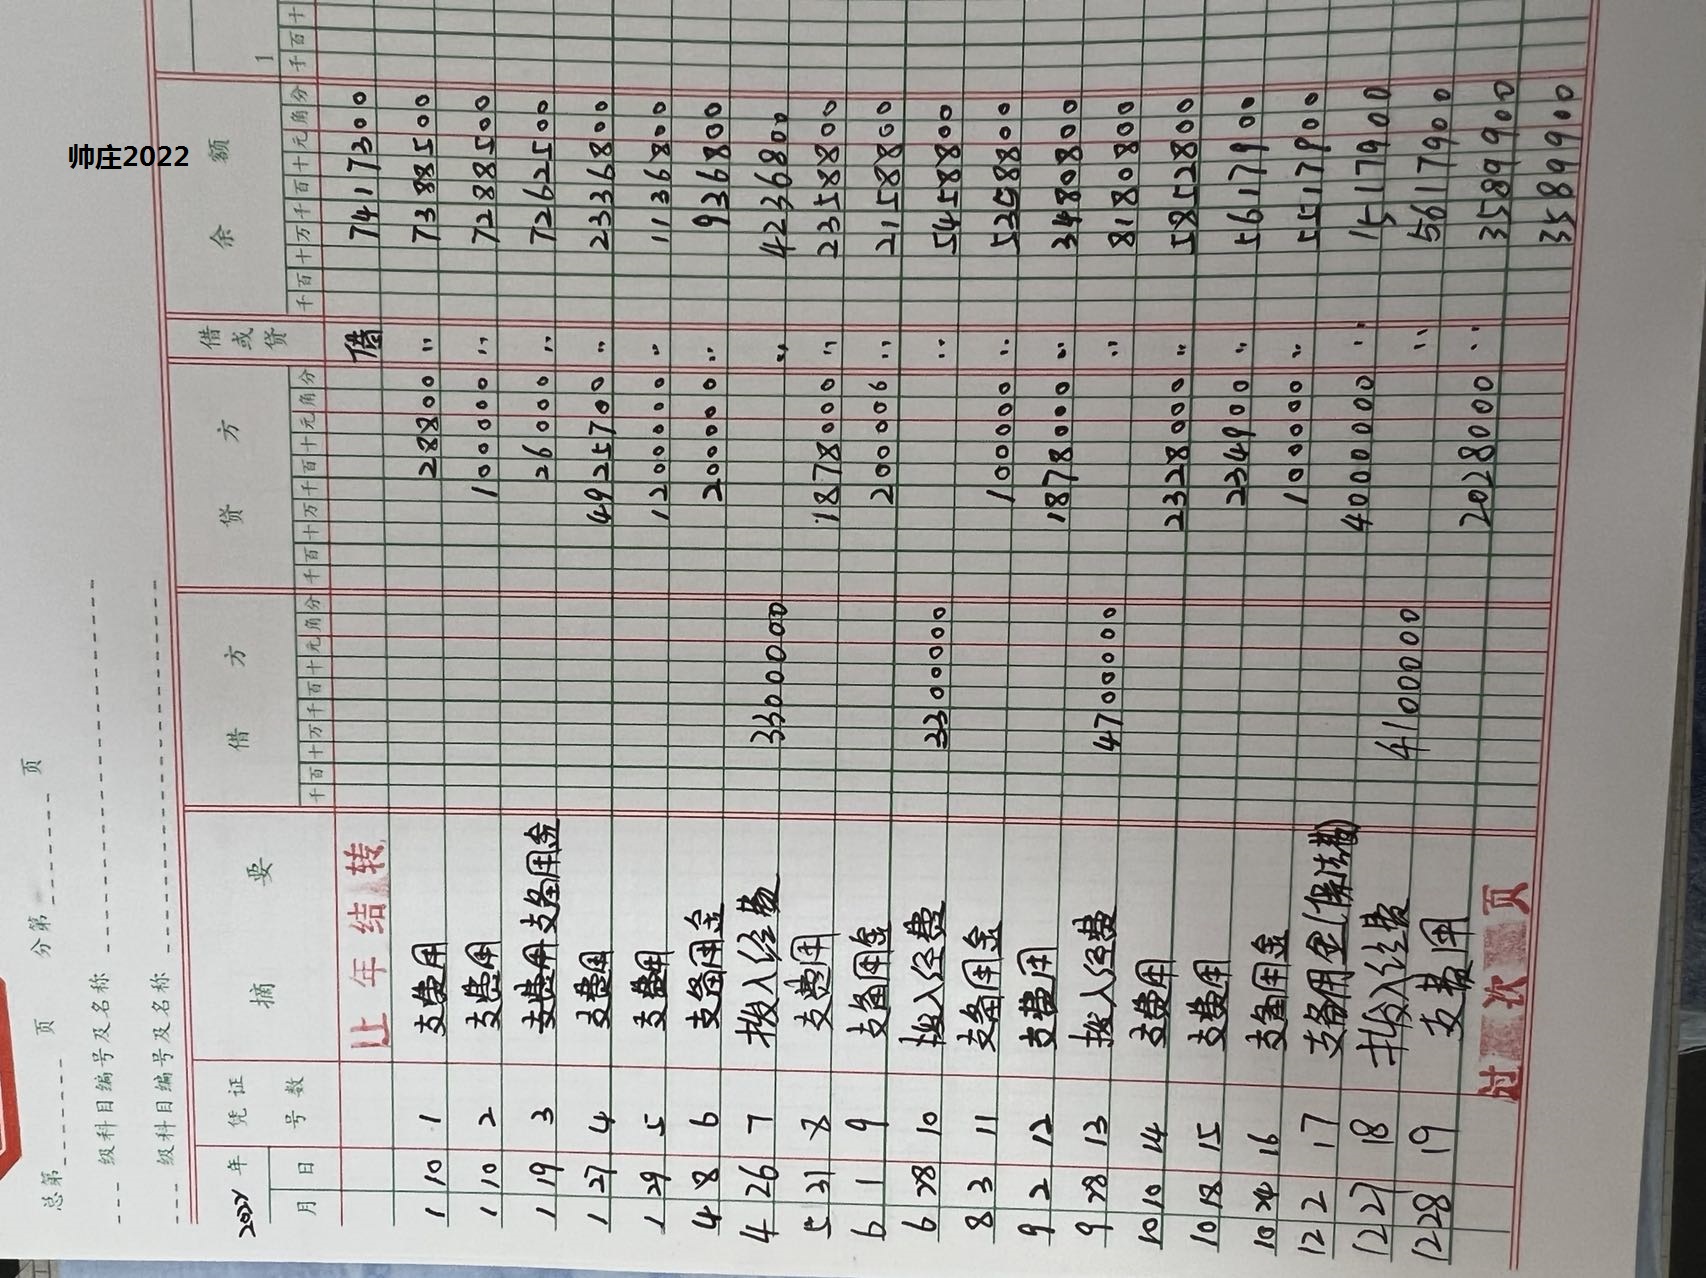 帅庄2022
总第 页 分第 页
级科目编号及名称
级科目编号及名称
2022年 凭证 摘要 借方 贷方 借或贷 余额
月 日 号数 千百十万千百十元角分 千百十万千百十元角分 千百十万千百十元角分
上年结转 借 7417300
1 10 1 支费用 28800 〃 7388500
1 10 2 支费用 100000 〃 7288500
1 19 3 支费用支备用金 26000 〃 7262500
1 27 4 支费用 4925700 〃 2336800
1 29 5 支费用 1200000 〃 1136800
4 8 6 支备用金 200000 〃 936800
4 26 7 拨入经费 3300000 〃 4236800
5 31 8 支费用 1878000 〃 2358800
6 1 9 支备用金 200000 〃 2158800
6 28 10 拨入经费 3300000 〃 5458800
8 3 11 支备用金 100000 〃 5358800
9 2 12 支费用 1878000 〃 3480800
9 28 13 拨入经费 4700000 〃 8180800
10 10 14 支费用 2328000 〃 5852800
10 18 15 支费用 234900 〃 5617900
10 24 16 支备用金 100000 〃 5517900
12 2 17 支备用金(保洁费) 4000000 〃 1517900
12 27 18 拨入经费 4100000 〃 5617900
12 28 19 支费用 2028000 〃 3589900
过次页 3589900